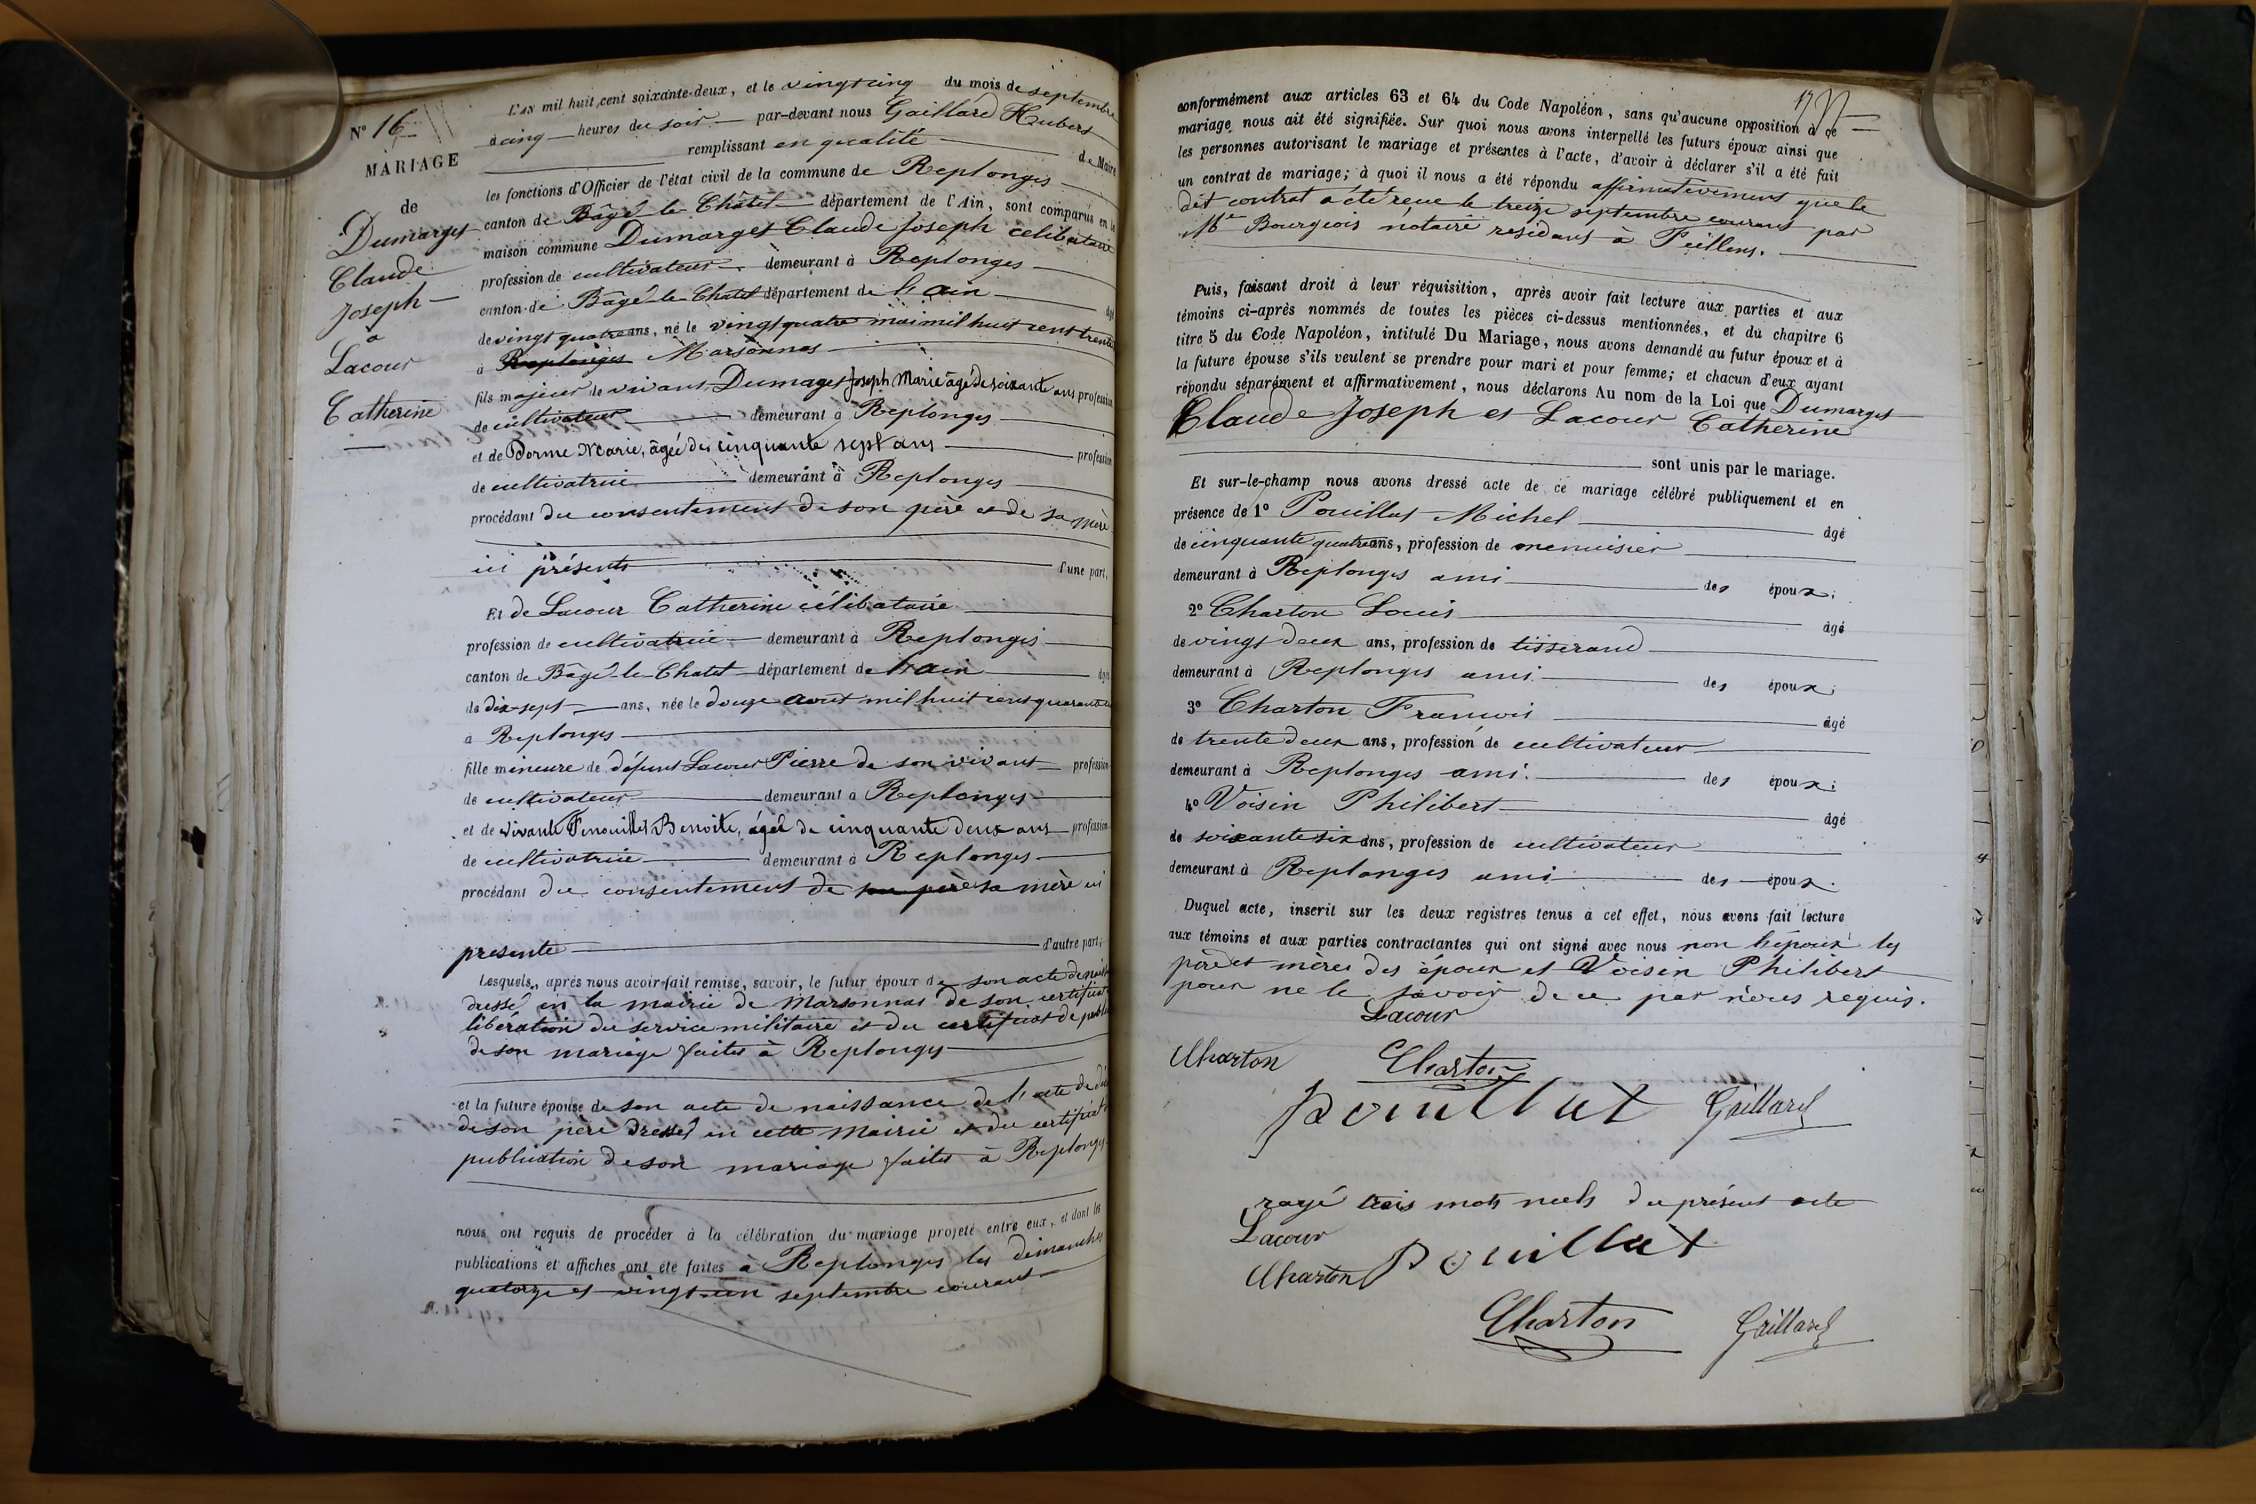 N° 16
MARIAGE
de
Dumarget
Claude
Joseph
a
Lacour
Catherine
L'AN mil huit cent soixante-deux, et le vingt cinq du mois de septembre
à cinq heures du soir par-devant nous Gaillard Hubert
remplissant en qualité de Maire
les fonctions d'Officier de l'état civil de la commune de Replonges
canton de Bâgé-le-Châtel département de l'Ain, sont comparus en la
maison commune Dumarget Claude Joseph célibataire
profession de cultivateur demeurant à Replonges
canton de Bâgé-le-Chatel département de l'ain âgé
de vingt quatre ans, né le vingt quatre mai mil huit cent trente
à Replonges Marsonnas
fils majeur de vivant Dumaget Joseph Marie âgé de soixante ans profession
de cultivateur demeurant à Replonges
et de Dorme Marie, âgée de cinquante sept ans profession
de cultivatrice demeurant à Replonges
procédant du consentement de son père et de sa mère
ici présents d'une part,
Et de Lacour Catherine célibataire
profession de cultivatrice demeurant à Replonges
canton de Bâgé-le-Chatel département de l'ain âgée
de dix-sept ans, née le douze aout mil huit cent quarante
à Replonges
fille mineure de défunt Lacour Pierre de son vivant profession
de cultivateur demeurant à Replonges
et de vivante Fenouillet Benoite, âgée de cinquante deux ans profession
de cultivatrice demeurant à Replonges
procédant du consentement de son père sa mère ici
presente d'autre part;
Lesquels, après nous avoir fait remise, savoir, le futur époux de son acte de
dressé en la mairie de Marsonnas de son certificat
libération du service militaire et du certificat de
de son mariage faites à Replonges
et la future épouse de son acte de naissance de l'acte de
de son père dressés en cette Mairie et du certificat
publication de son mariage faites à Replonges
nous ont requis de procéder à la célébration du mariage projeté entre eux, et dont les
publications et affiches ont été faites à Replonges les dimanches
quatorze et vingt-un septembre courant
17
conformément aux articles 63 et 64 du Code Napoléon, sans qu'aucune opposition à ce
mariage nous ait été signifiée. Sur quoi nous avons interpellé les futurs époux ainsi que
les personnes autorisant le mariage et présentes à l'acte, d'avoir à déclarer s'il a été fait
un contrat de mariage; à quoi il nous a été répondu affirmativement que le
dit contrat a été reçu le treize septembre courant par
Me Bourgeois notaire residant à Feillens.
Puis, faisant droit à leur réquisition, après avoir fait lecture aux parties et aux
témoins ci-après nommés de toutes les pièces ci-dessus mentionnées, et du chapitre 6
titre 5 du Code Napoléon, intitulé Du Mariage, nous avons demandé au futur époux et à
la future épouse s'ils veulent se prendre pour mari et pour femme; et chacun d'eux ayant
répondu séparément et affirmativement, nous déclarons Au nom de la Loi que Dumarget
Claude Joseph et Lacour Catherine
sont unis par le mariage.
Et sur-le-champ nous avons dressé acte de ce mariage célébré publiquement et en
présence de 1° Pouillat Michel âgé
de cinquante quatre ans, profession de menuisier
demeurant à Replonges ami des époux;
2° Charton Louis âgé
de vingt deux ans, profession de tisserand
demeurant à Replonges ami des époux;
3° Charton Francois âgé
de trente deux ans, profession de cultivateur
demeurant à Replonges ami des époux;
4° Voisin Philibert âgé
de soixante six ans, profession de cultivateur
demeurant à Replonges ami des époux.
Duquel acte, inscrit sur les deux registres tenus à cet effet, nous avons fait lecture
aux témoins et aux parties contractantes qui ont signé avec nous non l'époux les
père et mères des époux et Voisin Philibert
pour ne le savoir de ce par nous requis.
Lacour
Charton Charton
pouillat Gaillard
rayé trois mots nuls du présent acte
Lacour
Charton pouillat
Charton Gaillard